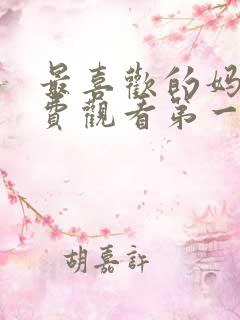 最喜歡的妈
費觀看第一
胡嘉許